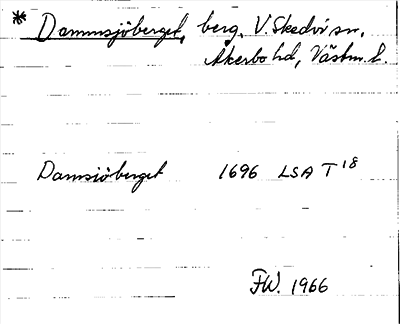 * Dammsjöberget, berg, V. Skedvi sn,
Åkerbo hd, Västm. l.
Damsiöberget 1696 LSA T 18
FW. 1966